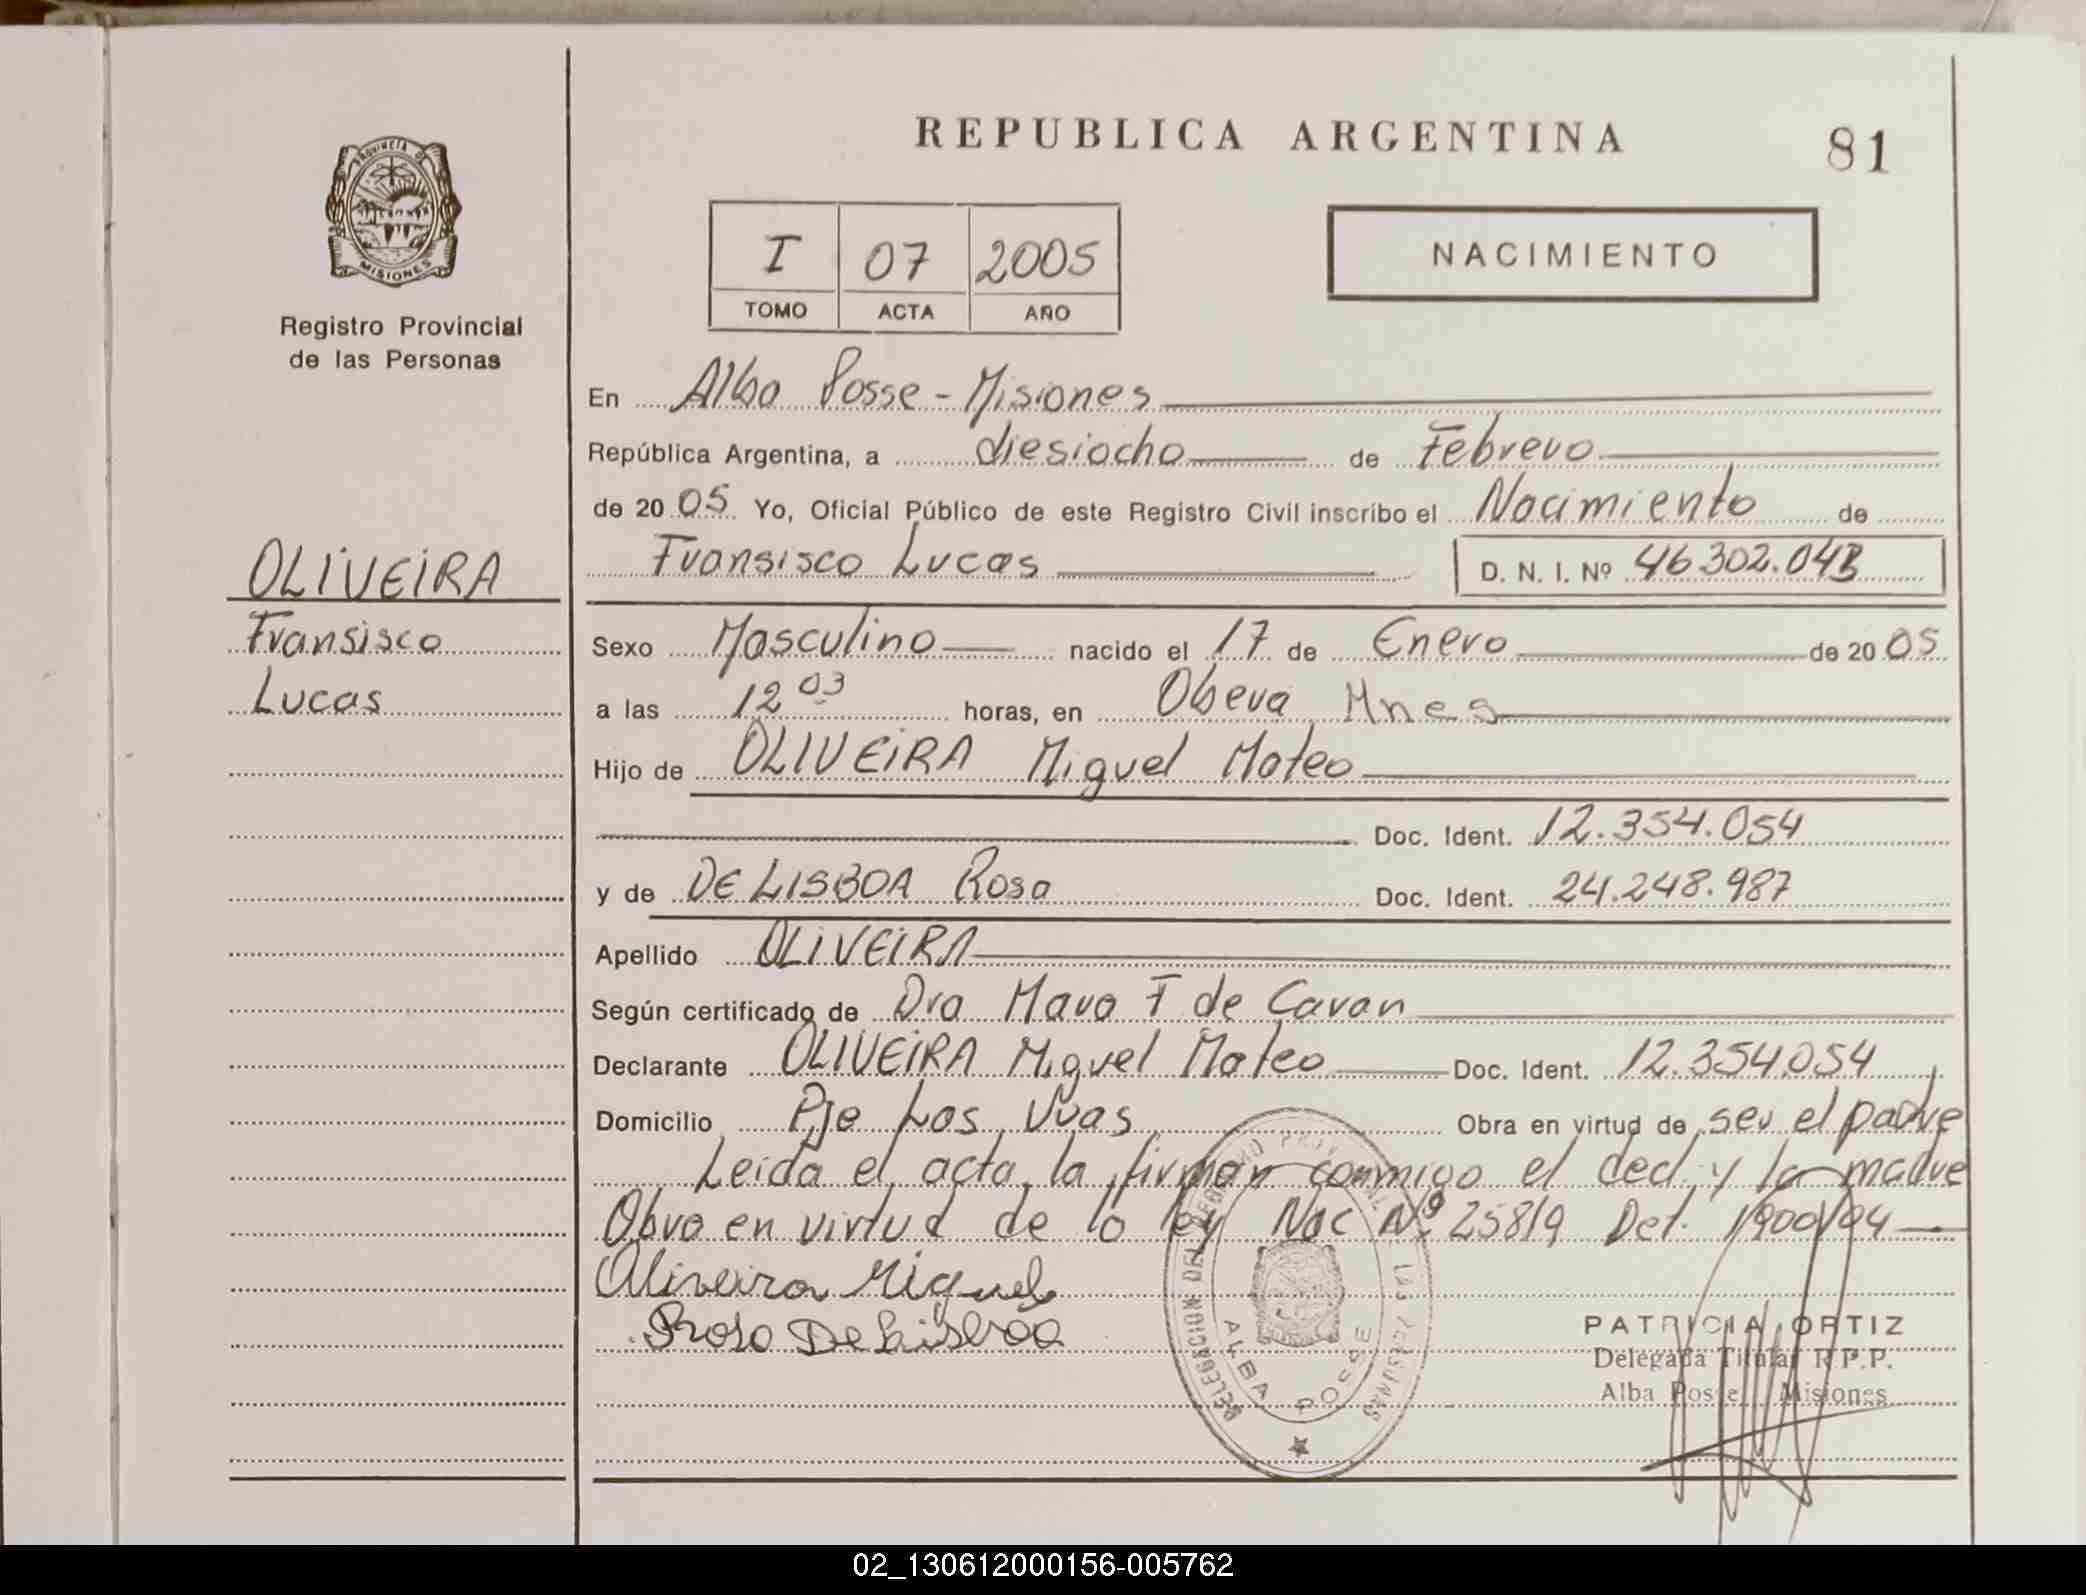 REPUBLICA ARGENTINA
81
PROVINCIA DE
MISIONES
Registro Provincial
de las Personas
I 07 2005
TOMO ACTA AÑO
NACIMIENTO
En Alba Posse - Misiones
República Argentina, a diesiocho de Febrero
de 2005 Yo, Oficial Público de este Registro Civil inscribo el Nacimiento de
Fransisco Lucas D. N. I. Nº 46302.043
OLIVEIRA
Fransisco
Lucas
Sexo Masculino nacido el 17 de Enero de 2005
a las 12 03 horas, en Obera Mnes
Hijo de OLIVEIRA Miguel Mateo
Doc. Ident. 12.354.054
y de DE LISBOA Rosa Doc. Ident. 24.248.987
Apellido OLIVEIRA
Según certificado de Dra Mara F de Caran
Declarante OLIVEIRA Miguel Mateo Doc. Ident. 12.354.054
Domicilio Pje Las Uvas Obra en virtud de ser el padre
Leida el acta, la firman conmigo el decl. y la madre
Obra en virtud de la ley Nac Nº 25819 Det. 1900/04
Oliveira Miguel
Rosa De Lisboa
DELEGACION DEL REGISTRO PROVINCIAL DE LAS PERSONAS
ALBA POSSE
PATRICIA ORTIZ
Delegada Titular R.P.P.
Alba Posse Misiones
02_130612000156-005762